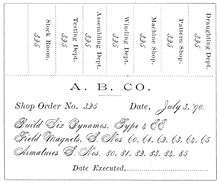 Stock Room. 395
Testing Dept. 395
Assembling Dept. 395
Winding Dept. 395
Machine Shop. 395
Pattern Shop. 395
Draughting Dept. 395
A. B. CO.
Shop Order No. 395 Date, July 3, '90.
Build Six Dynamos, Type 4 EE
Field Magnets, S. Nos. 60, 61, 62, 63, 64, 65
Armatures S. Nos. 80, 81, 82, 83, 84, 85
Date Executed,